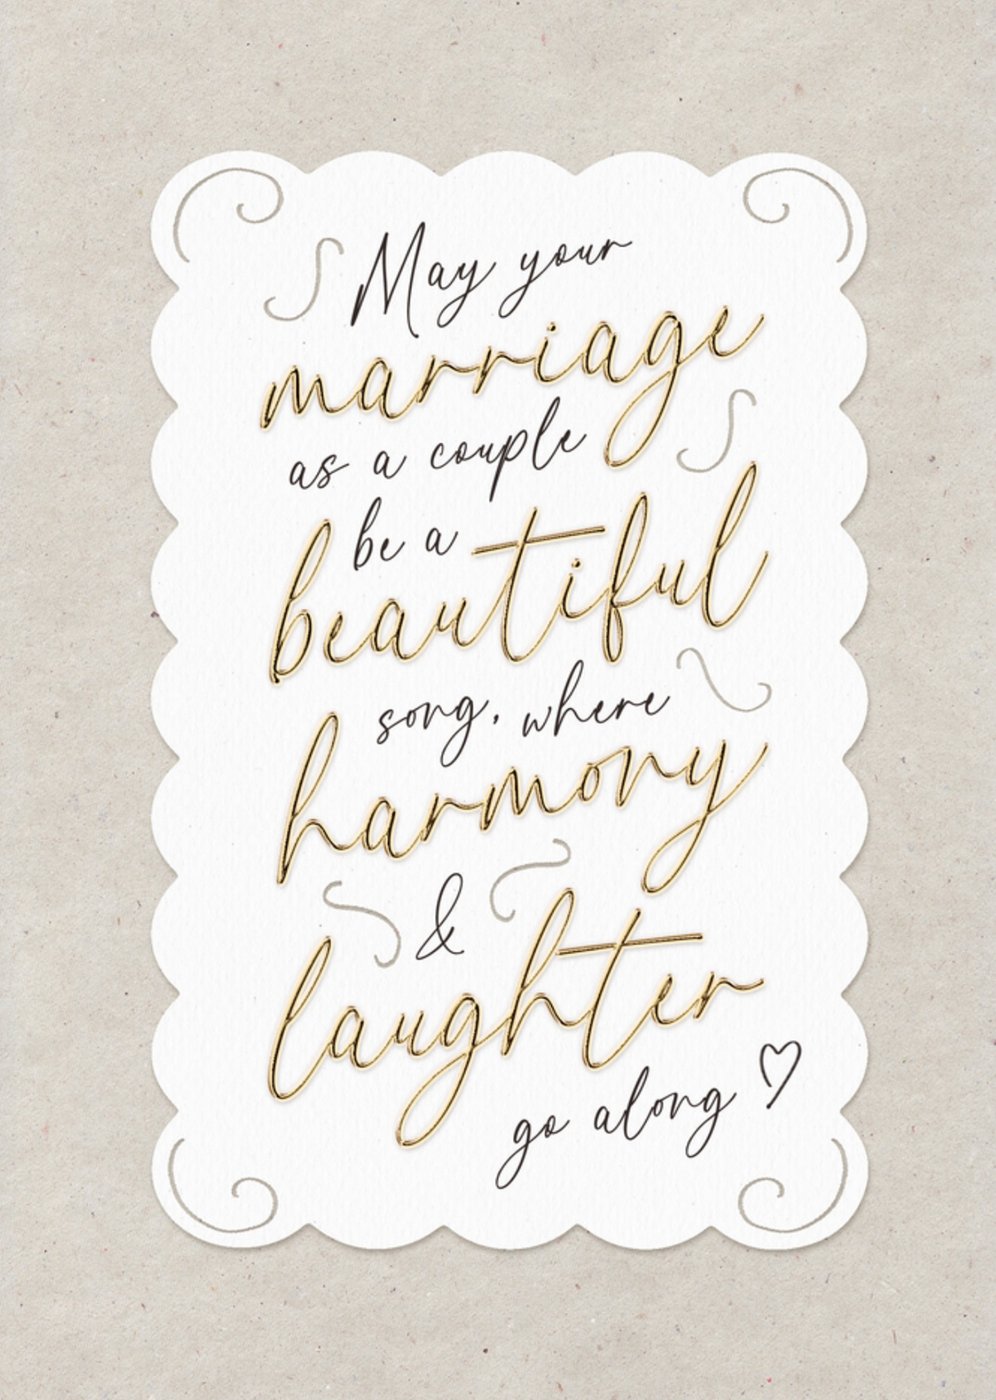 May your
marriage
as a couple
be a
beautiful
song, where
harmony
&
laughter
go along